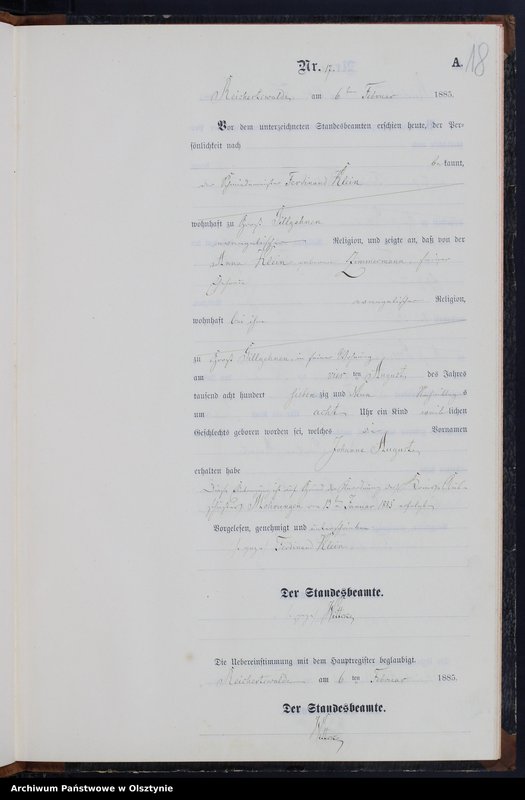 18
Nr. 17.
A.
Reichertswalde am 6 ten Februar 1885.
Vor dem unterzeichneten Standesbeamten erschien heute, der Per=
sönlichkeit nach
be kannt,
der Schmiedemeister Ferdinand Klein
wohnhaft zu Groß
evangelischer Religion, und zeigte an, daß von der
Anna Klein geborene Zimmermann, seiner
Ehefrau
evangelischer Religion,
wohnhaft bei ihm
zu Groß in seiner Wohnung
am vier ten August des Jahres
tausend acht hundert siebenzig und Nachmittags
um acht Uhr ein Kind weiblichen
Geschlechts geboren worden sei, welches die Vornamen
Johanne Auguste
erhalten habe
auf Grund der des Kreis-Aus-
schusses Mohrungen vom 13ten Januar 1885 erfolgt.
Vorgelesen, genehmigt und unterschrieben
gezeg. Ferdinand Klein
Der Standesbeamte.
gezeg.
Die Uebereinstimmung mit dem Hauptregister beglaubigt.
Reichertswalde am 6 ten Februar 1885.
Der Standesbeamte.
Archiwum Państwowe w Olsztynie